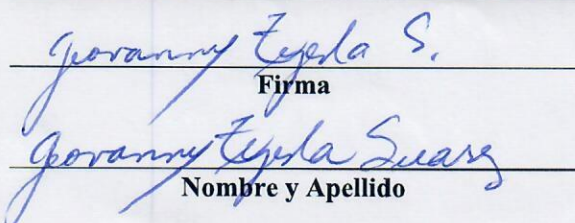 Geovanny Tejeda S.
Firma
Geovanny Tejeda Suarez
Nombre y Apellido